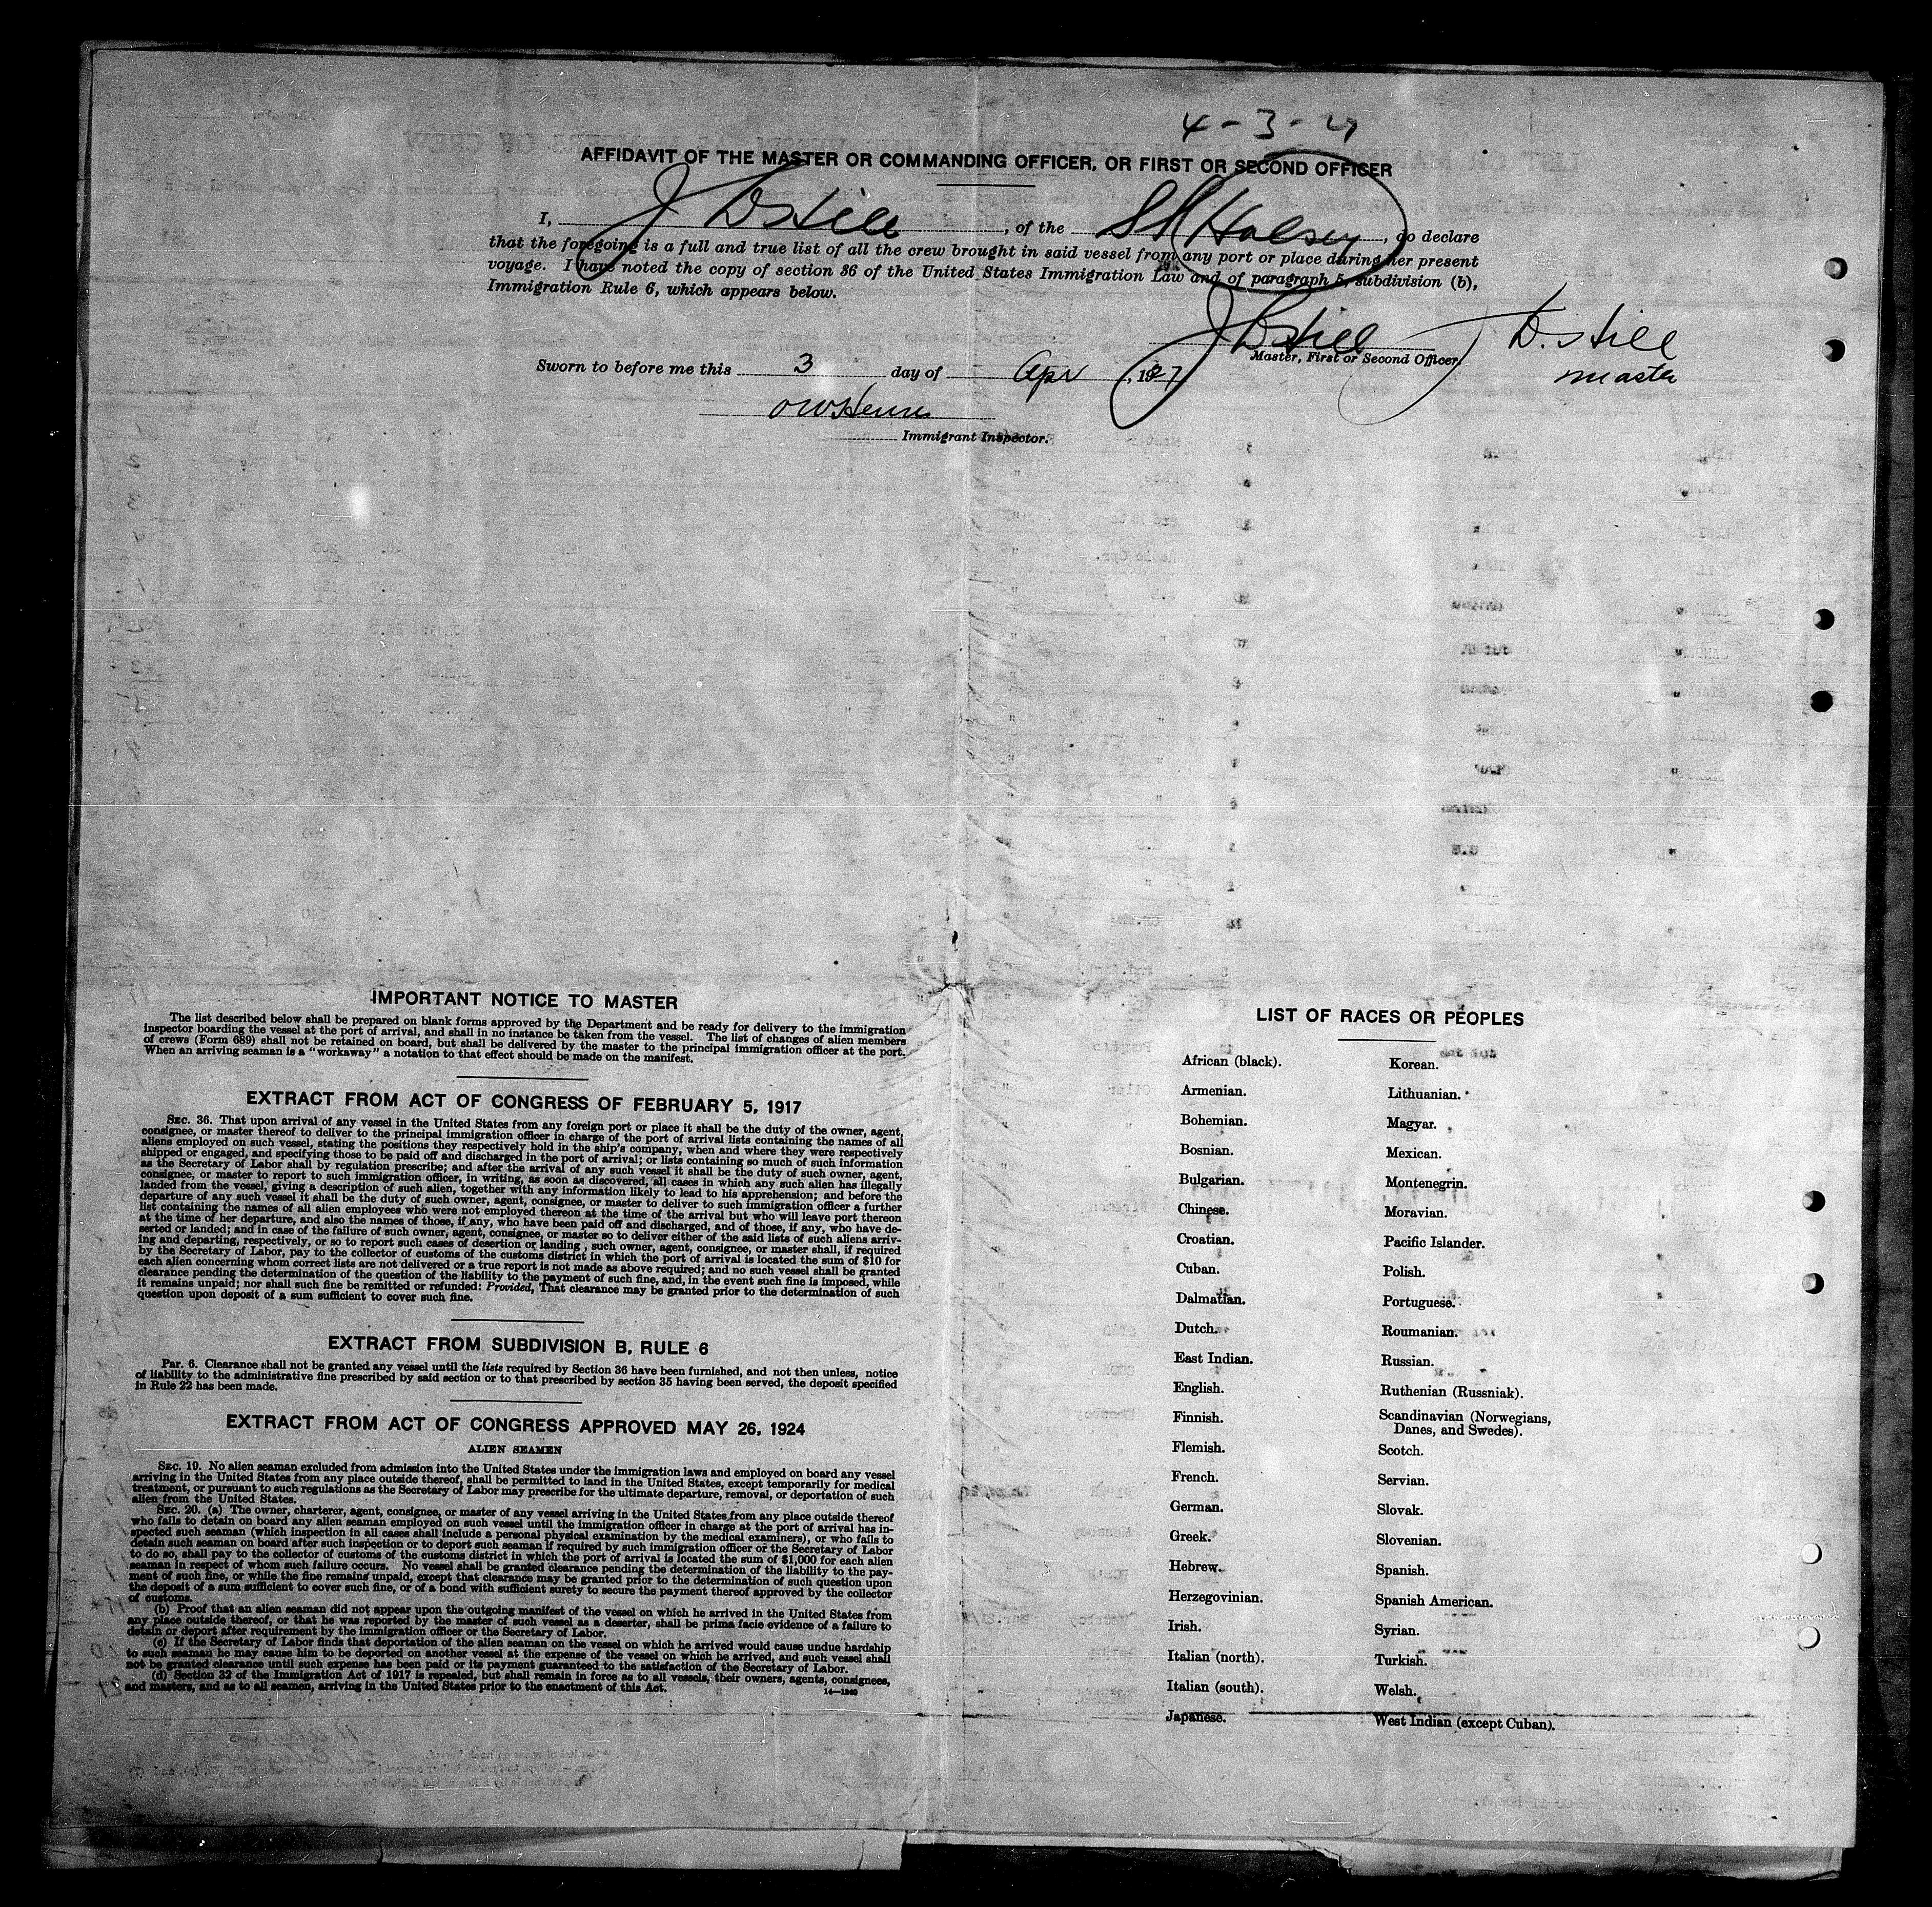 4-3-27
AFFIDAVIT OF THE MASTER OR COMMANDING OFFICER, OR FIRST OR SECOND OFFICER
I, J D Hill, of the SS Halsey, do declare
that the foregoing is a full and true list of all the crew brought in said vessel from any port or place during her present
voyage. I have noted the copy of section 36 of the United States Immigration Law and of paragraph 5, subdivision (b),
Immigration Rule 6, which appears below.
J D Hill J D. Hill
Master, First or Second Officer.
master
Sworn to before me this 3 day of Apr, 1927
Immigrant Inspector.
IMPORTANT NOTICE TO MASTER
The list described below shall be prepared on blank forms approved by the Department and be ready for delivery to the immigration
inspector boarding the vessel at the port of arrival, and shall in no instance be taken from the vessel. The list of changes of alien members
of crews (Form 689) shall not be retained on board, but shall be delivered by the master to the principal immigration officer at the port.
When an arriving seaman is a "workaway" a notation to that effect should be made on the manifest.
EXTRACT FROM ACT OF CONGRESS OF FEBRUARY 5, 1917
SEC. 36. That upon arrival of any vessel in the United States from any foreign port or place it shall be the duty of the owner, agent,
consignee, or master thereof to deliver to the principal immigration officer in charge of the port of arrival lists containing the names of all
aliens employed on such vessel, stating the positions they respectively hold in the ship's company, when and where they were respectively
shipped or engaged, and specifying those to be paid off and discharged in the port of arrival; or lists containing so much of such information
as the Secretary of Labor shall by regulation prescribe; and after the arrival of any such vessel it shall be the duty of such owner, agent,
consignee, or master to report to such immigration officer, in writing, as soon as discovered, all cases in which any such alien has illegally
landed from the vessel, giving a description of such alien, together with any information likely to lead to his apprehension; and before the
departure of any such vessel it shall be the duty of such owner, agent, consignee, or master to deliver to such immigration officer a further
list containing the names of all alien employees who were not employed thereon at the time of the arrival but who will leave port thereon
at the time of her departure, and also the names of those, if any, who have been paid off and discharged, and of those, if any, who have de-
serted or landed; and in case of the failure of such owner, agent, consignee, or master so to deliver either of the said lists of such aliens arriv-
ing and departing, respectively, or so to report such cases of desertion or landing, such owner, agent, consignee, or master shall, if required
by the Secretary of Labor, pay to the collector of customs of the customs district in which the port of arrival is located the sum of $10 for
each alien concerning whom correct lists are not delivered or a true report is not made as above required; and no such vessel shall be granted
clearance pending the determination of the question of the liability to the payment of such fine, and, in the event such fine is imposed, while
it remains unpaid; nor shall such fine be remitted or refunded: Provided, That clearance may be granted prior to the determination of such
question upon deposit of a sum sufficient to cover such fine.
EXTRACT FROM SUBDIVISION B, RULE 6
Par. 6. Clearance shall not be granted any vessel until the lists required by Section 36 have been furnished, and not then unless, notice
of liability to the administrative fine prescribed by said section or to that prescribed by section 35 having been served, the deposit specified
in Rule 22 has been made.
EXTRACT FROM ACT OF CONGRESS APPROVED MAY 26, 1924
ALIEN SEAMEN
SEC. 19. No alien seaman excluded from admission into the United States under the immigration laws and employed on board any vessel
arriving in the United States from any place outside thereof, shall be permitted to land in the United States, except temporarily for medical
treatment, or pursuant to such regulations as the Secretary of Labor may prescribe for the ultimate departure, removal, or deportation of such
alien from the United States.
SEC. 20. (a) The owner, charterer, agent, consignee, or master of any vessel arriving in the United States from any place outside thereof
who fails to detain on board any alien seaman employed on such vessel until the immigration officer in charge at the port of arrival has in-
spected such seaman (which inspection in all cases shall include a personal physical examination by the medical examiners), or who fails to
detain such seaman on board after such inspection or to deport such seaman if required by such immigration officer or the Secretary of Labor
to do so, shall pay to the collector of customs of the customs district in which the port of arrival is located the sum of $1,000 for each alien
seaman in respect of whom such failure occurs. No vessel shall be granted clearance pending the determination of the liability to the pay-
ment of such fine, or while the fine remains unpaid, except that clearance may be granted prior to the determination of such question upon
the deposit of a sum sufficient to cover such fine, or of a bond with sufficient surety to secure the payment thereof approved by the collector
of customs.
(b) Proof that an alien seaman did not appear upon the outgoing manifest of the vessel on which he arrived in the United States from
any place outside thereof, or that he was reported by the master of such vessel as a deserter, shall be prima facie evidence of a failure to
detain or deport after requirement by the immigration officer or the Secretary of Labor.
(c) If the Secretary of Labor finds that deportation of the alien seaman on the vessel on which he arrived would cause undue hardship
to such seaman he may cause him to be deported on another vessel at the expense of the vessel on which he arrived, and such vessel shall
not be granted clearance until such expense has been paid or its payment guaranteed to the satisfaction of the Secretary of Labor.
(d) Section 32 of the Immigration Act of 1917 is repealed, but shall remain in force as to all vessels, their owners, agents, consignees,
and masters, and as to all seamen, arriving in the United States prior to the enactment of this Act.
LIST OF RACES OR PEOPLES
African (black). Korean.
Armenian. Lithuanian.
Bohemian. Magyar.
Bosnian. Mexican.
Bulgarian. Montenegrin.
Chinese. Moravian.
Croatian. Pacific Islander.
Cuban. Polish.
Dalmatian. Portuguese.
Dutch. Roumanian.
East Indian. Russian.
English. Ruthenian (Russniak).
Finnish. Scandinavian (Norwegians,
Danes, and Swedes).
Flemish. Scotch.
French. Servian.
German. Slovak.
Greek. Slovenian.
Hebrew. Spanish.
Herzegovinian. Spanish American.
Irish. Syrian.
Italian (north). Turkish.
Italian (south). Welsh.
Japanese. West Indian (except Cuban).